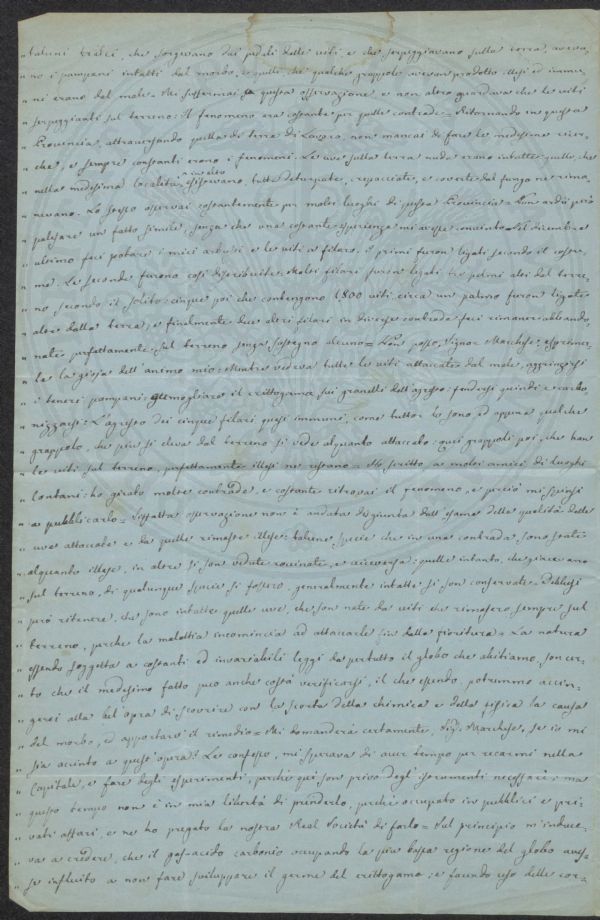 " taluni tralci, che sorgevano dai pedali delle viti, e che serpeggiavano sulla terra, aveva-
" no i pampani intatti dal morbo, e quelli che qualche grappolo avevan prodotto illesi ed immu-
" ni erano dal male = Mi soffermai a questa osservazione e non altro guardava che le viti
" serpeggianti sul terreno: il fenomeno era costante per quelle contrade = Ritornando in questa
" Provincia, attraversando quella di terra di Lavoro, non mancai di fare le medesime ricer-
" che, e sempre costanti erano i fenomeni. Le uve sulla terra nuda erano intatte: quelle, che
in alto
" nella medesima località esistevano, tutte deturpate, crepacciate, e coverte dal fungo ne rima-
" nevano. Lo stesso osservai costantemente per molti luoghi di questa Provincia = Non ardii però
" palesare un fatto simile, senza che una costante esperienza mi avesse munito = Il dicembre
" ultimo feci potare i miei arbusti e le viti a filaro. I primi furon legati secondo il costu-
" me. Le seconde furono così distribuite. Molti filari furon legati tre palmi alti dal terre-
" no secondo il solito: cinque poi che contengono 1800 viti circa un palmo furon ligate
" alte dalla terra, e finalmente due altri filari in diverse contrade feci rimanere abbando-
" nate perfettamente sul terreno senza sostegno alcuno = Non posso, Signor Marchese, esprimer-
" le la gioja dell'animo mio: Mentre vedeva tutte le viti attaccate dal male, aggrinzirsi
" i teneri pampani: germogliare il crittogamo sui granelli dell'agresto: fendersi quindi e carbo-
" nizzarsi: L'agresto dei cinque filari quasi immuni, come tuttor lo sono, ed appena qualche
" grappolo, che più si eleva dal terreno si vede alquanto attaccato: quei grappoli poi, che han
" le viti sul terreno, perfettamente illesi ne restano = Ho scritto a molti amici di luoghi
" lontani: ho girato molte contrade, e costante ritrovai il fenomeno, e perciò mi spinsi
" a pubblicarlo = Siffatta osservazione non è andata disgiunta dall'esame della qualità delle
" uve attaccate e da quelle rimaste illese: talune specie che in una contrada sono state
" alquanto illese, in altre si son vedute rovinate, e viceversa: quelle intanto, che giacevano
" sul terreno, di qualunque specie si fossero, generalmente intatte si son conservate = Debbesi
" però ritenere, che sono intatte quelle uve, che son nate da viti che rimasero sempre sul
" terreno, perché la malattia incomincia ad attaccarle sin dalla fioritura = La natura
" essendo soggetta a costanti ed invariabili leggi da pertutto il globo che abitiamo, son cer-
" to che il medesimo fatto può anche costà verificarsi, il che essendo, potremmo accin-
" gerci alla bel opra di scovrire con la scorta della chimica e della fisica la causa
" del morbo, ed apportarvi il rimedio = Mi domanderà certamente, Sig. Marchese, se io mi
" sia accinto a quest'opera? Le confesso, mi sperava di aver tempo per recarmi nella
" Capitale, e fare degli esperimenti, perché qui son privo degl'istrumenti necessarî: ma
" questo tempo non è in mia libertà di prenderlo, perché occupato in pubblici e pri-
" vati affari, e ne ho pregato la nostra Real Società di farlo = Sul principio m'induce-
" va a credere, che il gas-acido carbonio occupando la più bassa regione del globo aves-
" se influito a non fare sviluppare il germe del crittogamo: e facendo uso delle cor-